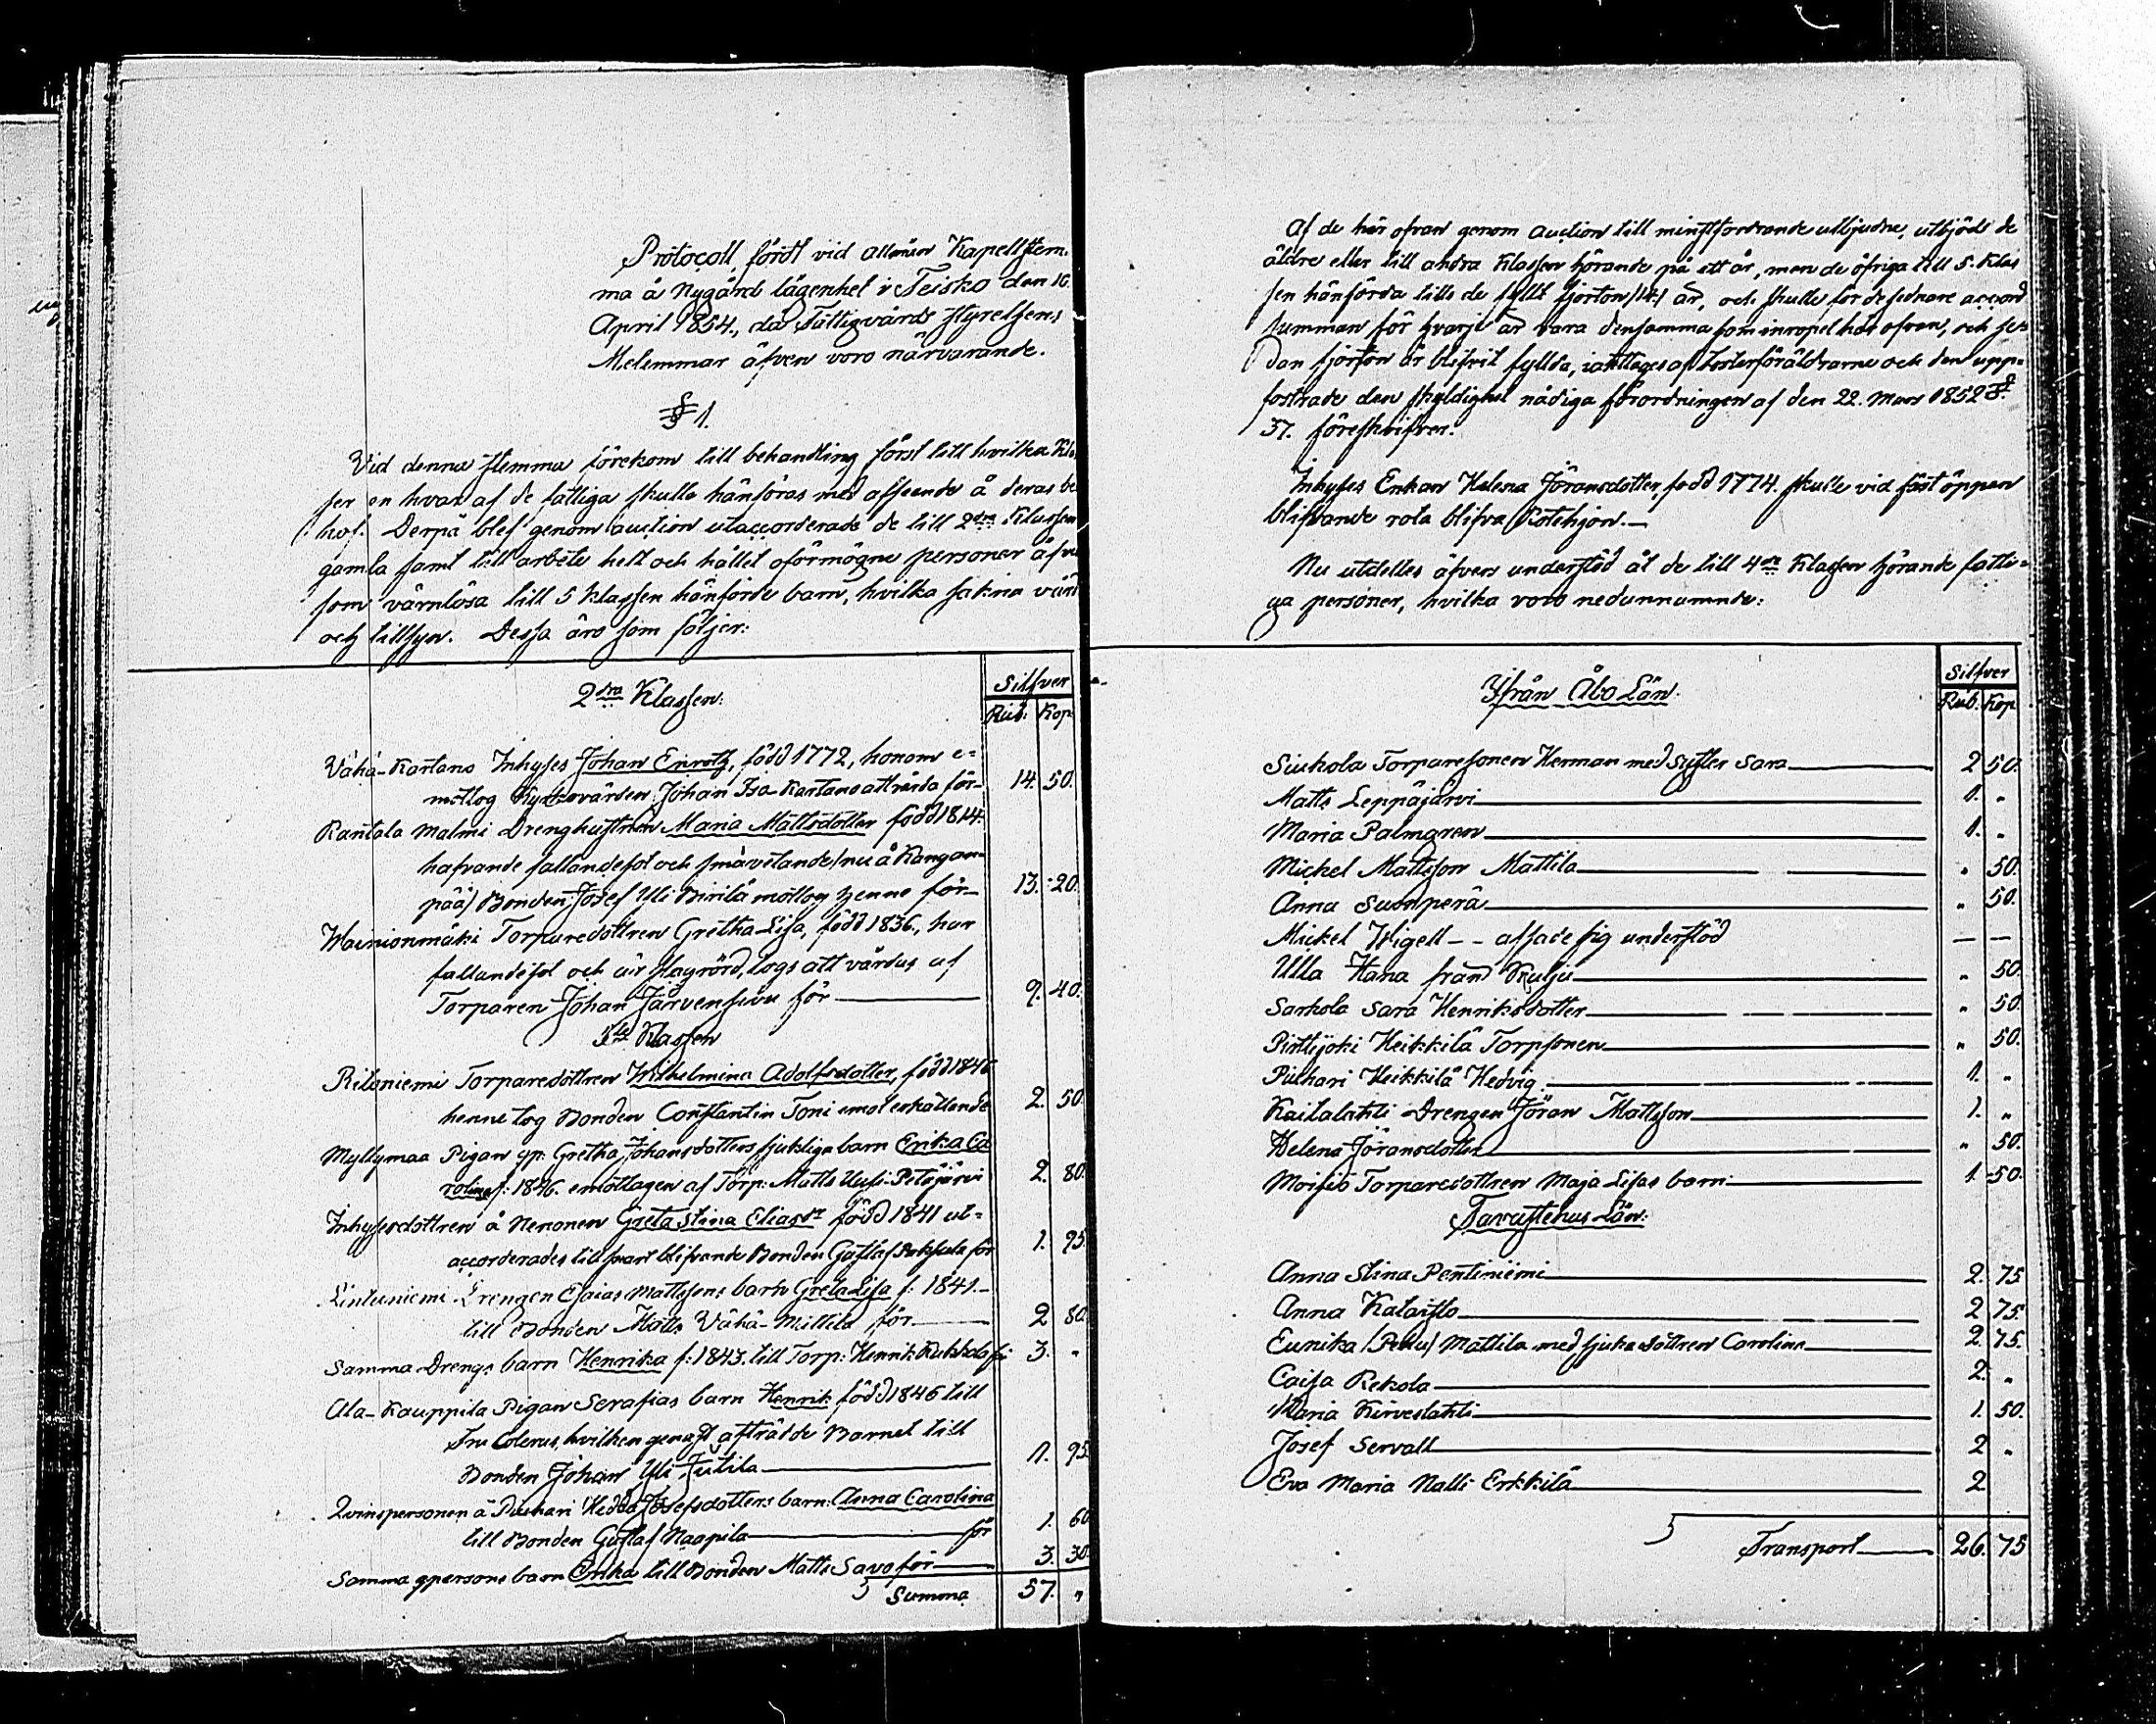 Protocoll, fördt vid allmän Kapellstem-
ma å Nygård lägenhet i Teisko den 16.
April 1854., då Fattigvårds Styrelsens
Melemmar äfven voro närvarande.
§ 1.
Vid denna stemma förekom till behandling först till hvilka Klas
ser en hvar af de fattiga skulle hänföras med afseende å deras be
hof. Derpå blef genom auction utaccorderade de till 2dra Klassen
gamla samt till arbete helt och hållet oförmögne personer äfven
som värnlösa till 5 klassen hänförde barn, hvilka sakna vård
och tillsyn. Dessa äro som följer:
Silfver
2dra Klassen:
Rub. Kop.
Vähä-Kartano Inhyses Johan Enrotz, född 1772, honom e=
mottog Kyrkovärden Johan Isa-Kartano att vårda för 14. 50.
Rantala Malmi Drenghustrun Maria Mattsdotter född 1814.
hafvande fallandesot och småvetande (nu å Kangan-
pää) Bonden Josef Yli Pirilä mottog henne för 13. 20.
Wainionmäki Torparedottren Gretha Lisa, född 1836, har
fallandesot och är slagrörd, togs att vårdas af
Torparen Johan Järvensivu för 9. 40.
5te Klassen
Riitoniemi Torparedottren Wilhelmina Adolfsdotter, född 1846
henne tog Bonden Constantin Toni emot erhållande 2. 50
Myllymaa Pigan gp: Gretha Johansdotters sjukliga barn Erika Ca
rolina f: 1846. emottagen af Torp: Matts Uusi-Petäjärvi 2. 80.
Inhysesdottren å Nenonen Greta Stina Eliasdr född 1841 ut=
accorderades till svart blifvande Bonden Gustaf Paksula för 1. 95
Lintuniemi Drengen Esaias Mattssons barn Greta Lisa f: 1841.-
till Bonden Matts Vähä-Mattila för 2 80
Samma Drengs barn Henrika f: 1843. till Torp: Henrik Kukkola för 3. "
Ala-Kauppila Pigan Serafias barn Henrik född 1846 till
Fru Colerus, hvilken genast afträdde Barnet till
Bonden Johan Yli Jutila 1. 95
Qvinspersonen å Puhari Hedda Josefsdotters barn Anna Carolina
till Bonden Gustaf Naapila för 1. 60
Samma qpersons barn Erika till Bonden Matts Savo för 3. 30.
Summa 57. "
Af de här ofvan genom auction till minstfordrande utbjudne, utbjöds de
äldre eller till andra Klassen hörande på ett år, men de öfriga till 5. Klas
sen hänförda tills de fyllt fjorton (14) år, och skulle för de sednare accord
summan för hvarje år vara densamma som inropet här ofvan, och se-
dan fjorton år blifvit fyllda, iakttages af fosterföräldrarne och den upp=
fostrade den skyldighet nådiga förordningen af den 22. Mars 1852 §.
37. föreskrifver.
Inhyses Enkan Helena Göransdotter, född 1774. skulle vid först öppen
blifvande rota blifva Rotehjon.—
Nu utdeltes äfven understöd åt de till 4de Klassen hörande fatti=
ga personer, hvilka voro nedannämnde:
Silfver
Ifrån Åbo Län.
Rub. Kop
Siukola Torparesonen Herman med syster Sara 2 50.
Matts Leppäjärvi 1. "
Maria Palmgren 1. "
Mickel Mattsson Mattila " 50.
Anna Suonperä " 50.
Mickel Wigell -- afsade sig understöd — —
Ulla Hana från Kulju " 50.
Sarkola Sara Henriksdotter " 50.
Pinttijoki Heikkilä Torpsonen " 50.
Puhari Heikkilä Hedvig 1. "
Kaitalahti Drengen Göran Mattsson 1. "
Helena Göransdotter " 50.
Moisio Torparedottren Maja Lisas barn 1. 50.
Tavastehus Län:
Anna Stina Pentiniemi 2. 75
Anna Kalaisto 2 75.
Eunika (Pelu) Mattila med sjuka dottren Carolina 2. 75.
Caisa Rekola 2. "
Maria Kirveslahti 1. 50.
Josef Servall 2 "
Eva Maria Nalli Erkkilä 2
Transport 26. 75